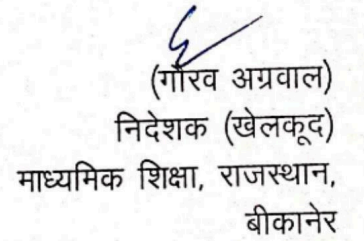 (गौरव अग्रवाल)
निदेशक (खेलकूद)
माध्यमिक शिक्षा, राजस्थान,
बीकानेर